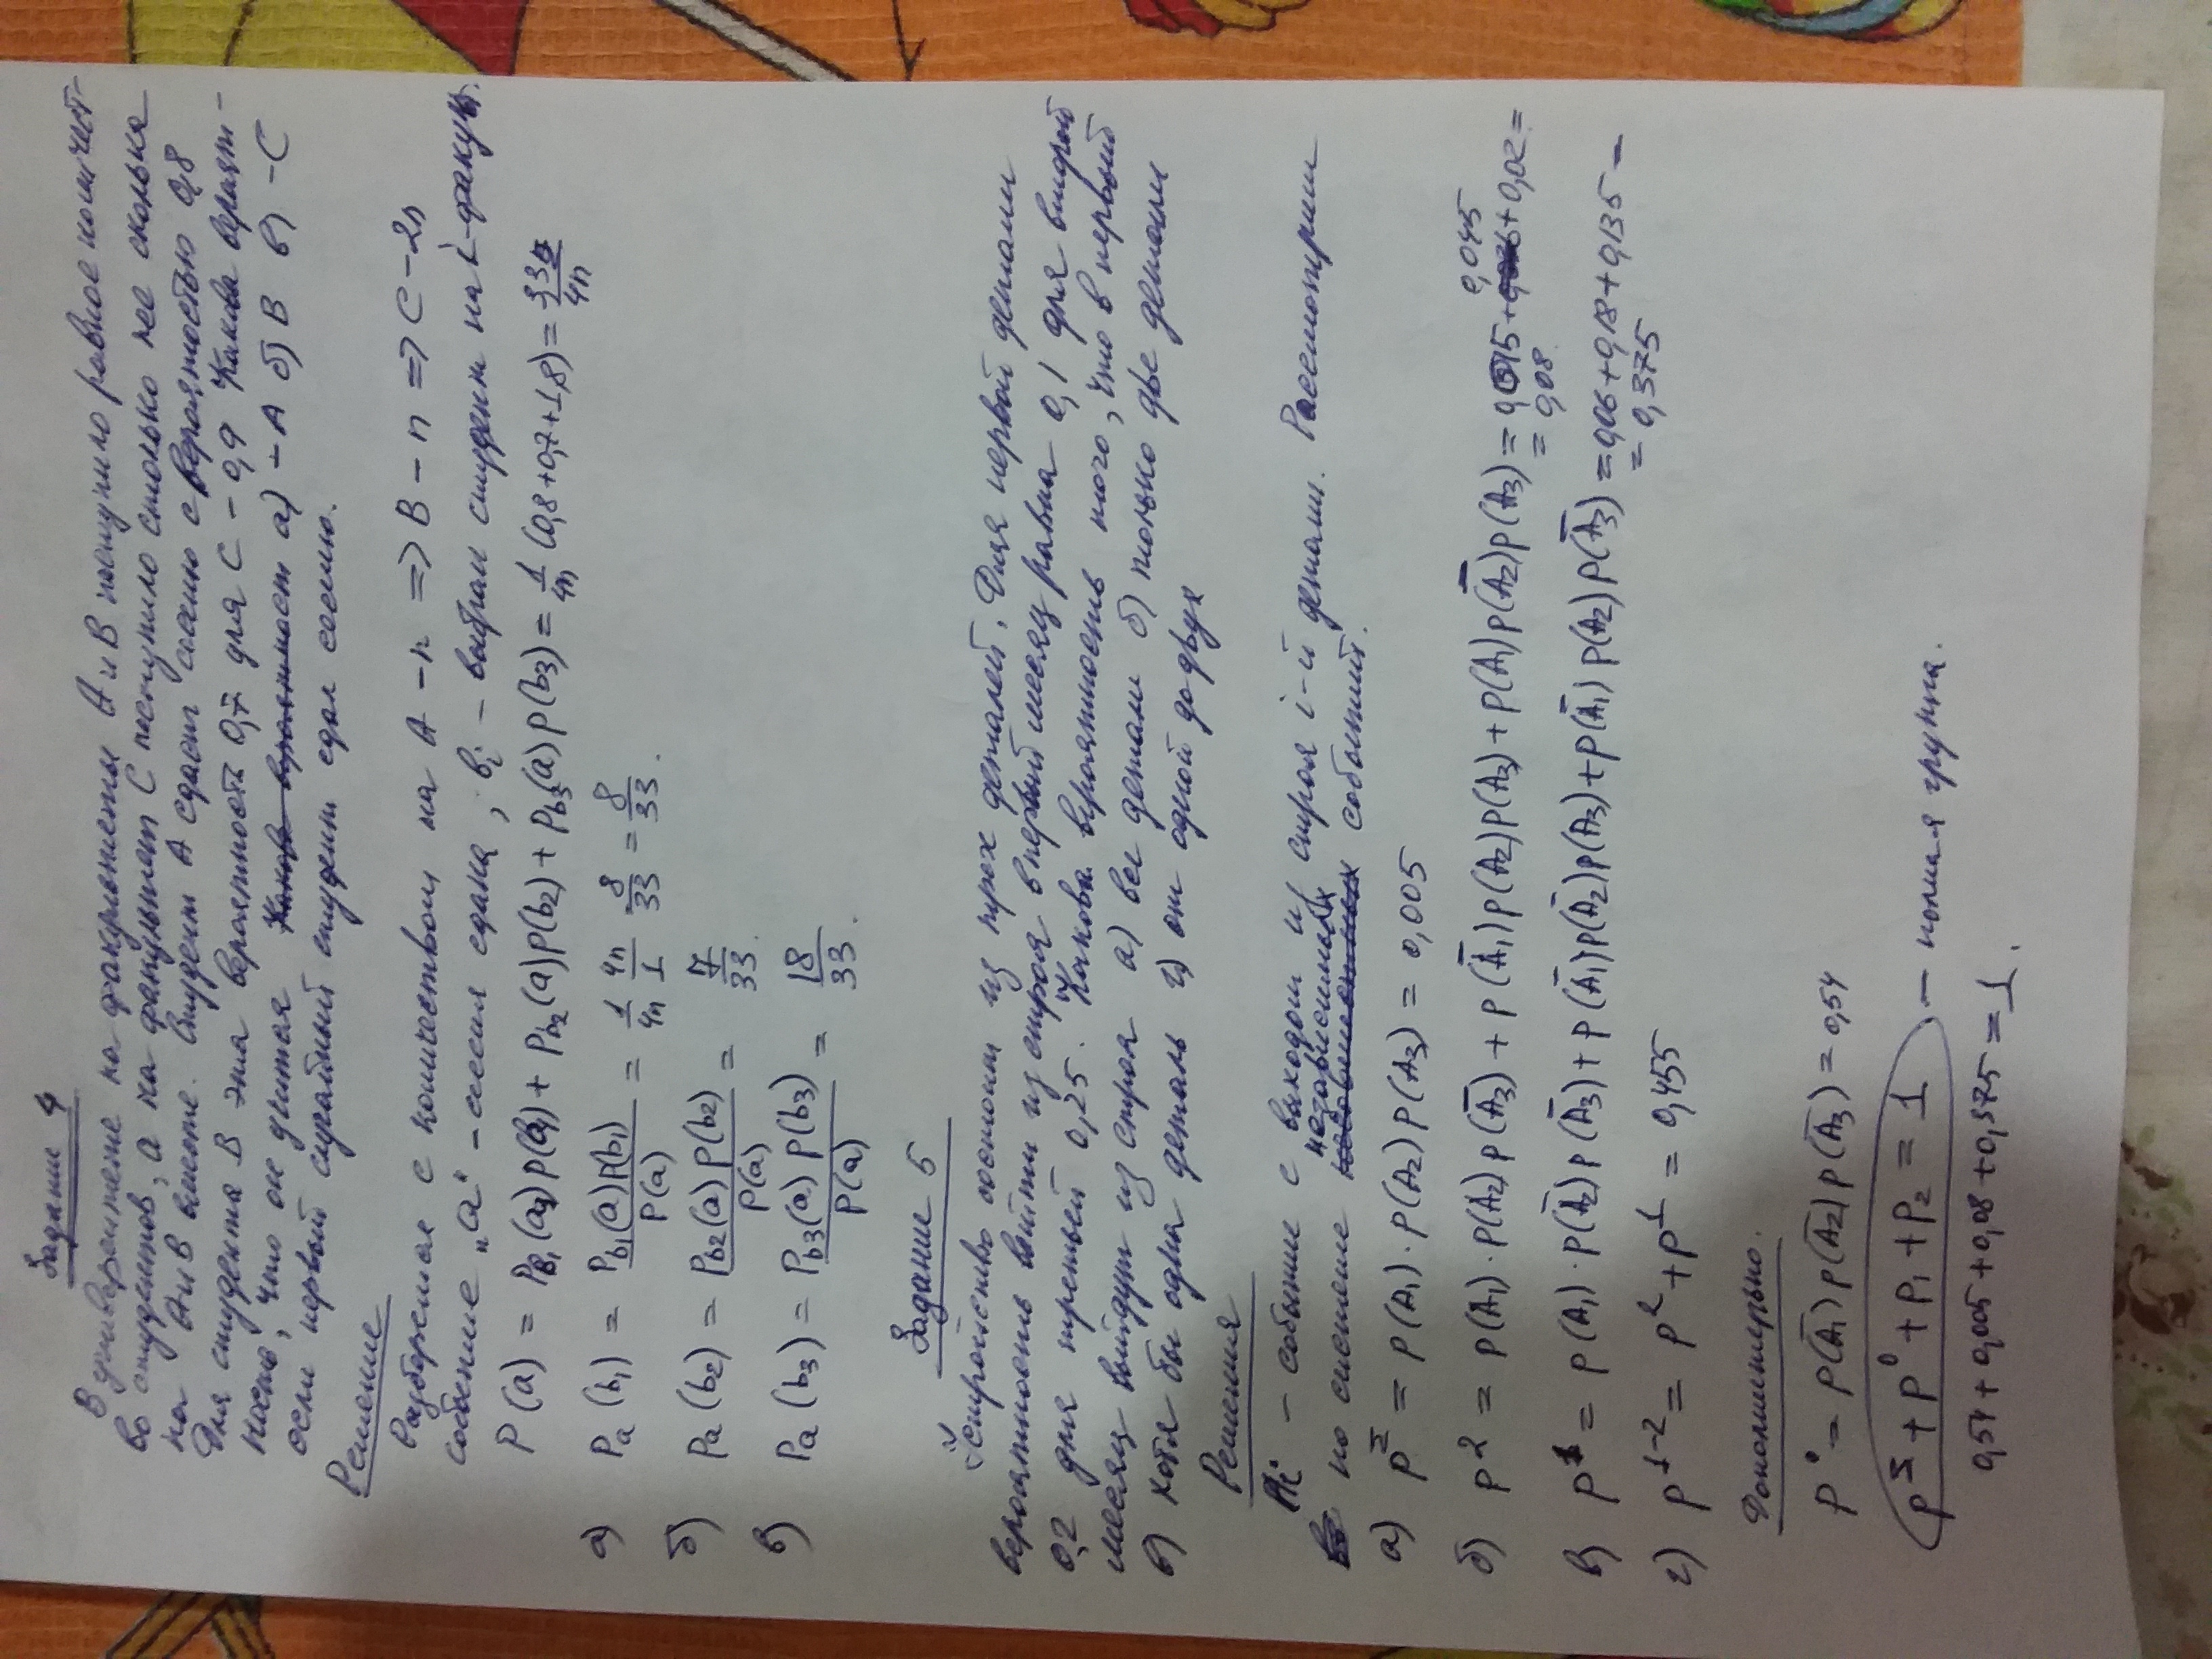 Задание 4
В университете на факультеты А и В поступило равное количест-
во студентов, а на факультет С поступило столько же сколько
на А и В вместе. Студент А сдаст сессию с вероятностью 0,8
Для студента В эта вероятность 0,7 для С - 0,9 Какова вероят-
ность, что он учится а) - А б) В в) - С
если первый случайный студент сдал сессию.
Решение
Разберемся с количеством на А - n => В - n => С - 2n
событие "a" - сессия сдана, bi - выбран студент на i-факульт.
P(a) = Pb₁(a)p(b₁) + Pb₂(a)p(b₂) + Pb₃(a)p(b₃) = 1/4n (0,8+0,7+1,8) = 3,3/4n
а) Pa(b₁) = Pb₁(a)p(b₁)/P(a) = 1/4n 4n/1 · 8/33 = 8/33.
б) Pa(b₂) = Pb₂(a)p(b₂)/P(a) = 7/33.
в) Pa(b₃) = Pb₃(a)p(b₃)/P(a) = 18/33.
Задание 5
Устройство состоит из трех деталей. Для первой детали
вероятность выйти из строя в первый месяц равна 0,1 для второй
0,2 для третьей 0,25. Какова вероятность того, что в первый
месяц выйдут из строя а) все детали б) только две детали
в) хотя бы одна деталь г) от одной до двух
Решения
Ai - событие с выходом из строя i-й детали. Рассмотрим
по системе независимых событий.
а) p^Σ = p(A₁)·p(A₂)p(A₃) = 0,005
б) p² = p(A₁)·p(A₂)p(A̅₃) + p(A̅₁)p(A₂)p(A₃) + p(A₁)p(A̅₂)p(A₃) = 0,015 + 0,045 + 0,02 =
= 0,08.
в) p¹ = p(A₁)·p(A̅₂)p(A̅₃) + p(A̅₁)p(A̅₂)p(A₃) + p(A̅₁)p(A₂)p(A̅₃) = 0,06 + 0,18 + 0,135 =
= 0,375
г) p¹⁻² = p² + p¹ = 0,455
Дополнительно.
p⁰ = p(A̅₁)p(A̅₂)p(A̅₃) = 0,54
p^Σ + p⁰ + p₁ + p₂ = 1 - полная группа.
0,54 + 0,005 + 0,08 + 0,375 = 1.